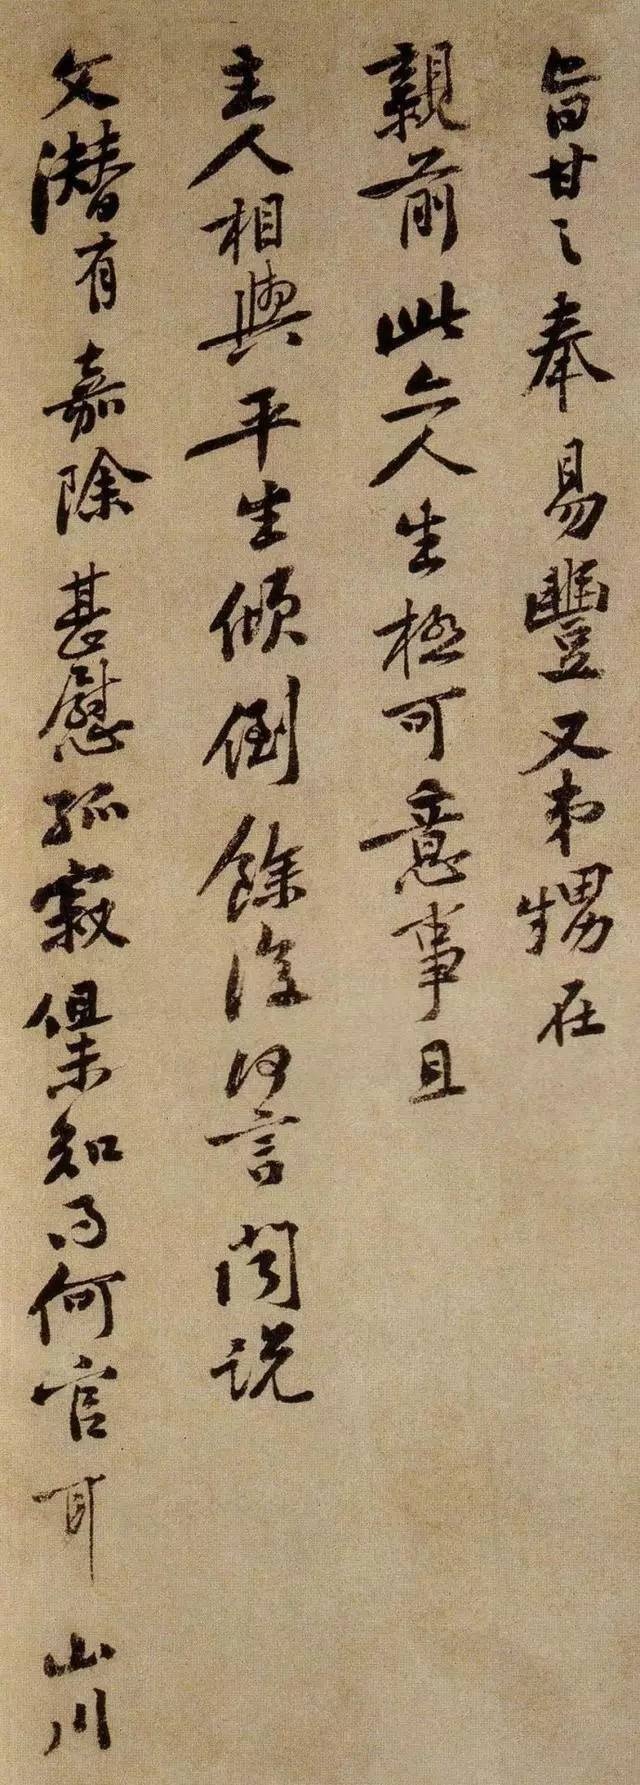 旨甘之奉易豐又弟甥在
親前此亦人生極可意事且
主人相與平生傾倒餘復何言聞説
文潛有嘉除甚慰孤寂但未知得何官耳山川